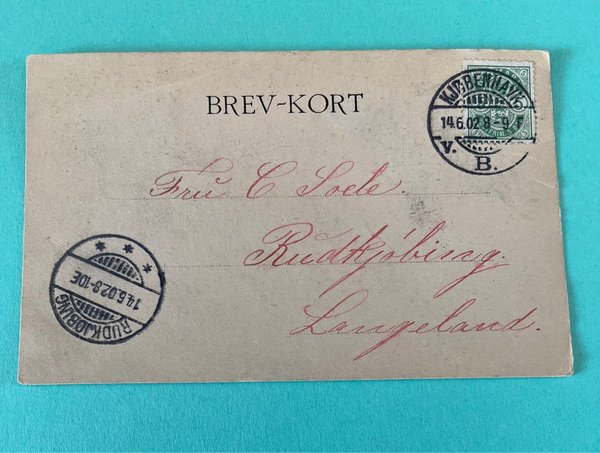 BREV-KORT
KJØBENHAVN
14.6.02 8-9 F
V. B.
Fru C Soele.
Rudkjöbing.
Langeland.
RUDKJØBING
14.6.02.8-10E